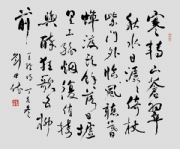 寒轉山蒼翠
秋水日潺湲倚杖
柴門外臨風聽暮
蟬渡頭餘落日墟
里上孤煙復值接
輿醉狂歌五柳
前